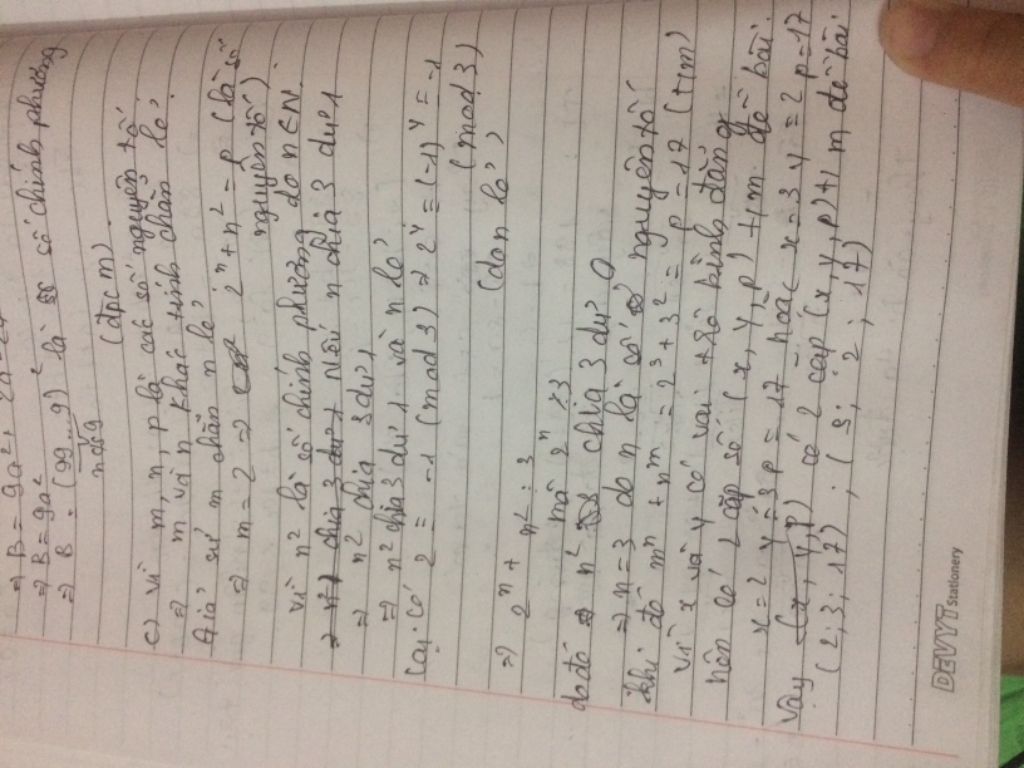 ⇒ B = 9a² + 2a
⇒ B = 9a²
⇒ B = (99...9)² là số chính phương
n số 9
(đpcm).
c) Vì m, n, p là các số nguyên tố
⇒ m và n khác tính chẵn lẻ.
Giả sử m chẵn n lẻ
⇒ m = 2 ⇒ 2ⁿ + n² = p (là số nguyên tố)
Vì n² là số chính phương do n ∈ N.
⇒ n² chia 3 dư 1 Nếu n chia 3 dư 1
⇒ n² chia 3 dư 1
⇒ n² chia 3 dư 1 và n lẻ
Lại có 2 ≡ -1 (mod 3) ⇒ 2ⁿ ≡ (-1)ⁿ = -1
(mod 3)
(do n lẻ)
⇒ 2ⁿ + n² ⋮ 3
do đó n² chia 3 dư 0
mà 2ⁿ ⋮̸ 3
⇒ n = 3 do n là số nguyên tố
Khi đó mⁿ + nᵐ = 2³ + 3² = p = 17 (t/m)
Vì x và y có vai trò bình đẳng
nên có 2 cặp số (x, y, p) t/m đề bài.
x = 2 y = 3 p = 17 hoặc x = 3 y = 2 p = 17
Vậy (x, y, p) có 2 cặp (x, y, p) t/m đề bài
(2; 3; 17); (3; 2; 17)
DEVYT Stationery